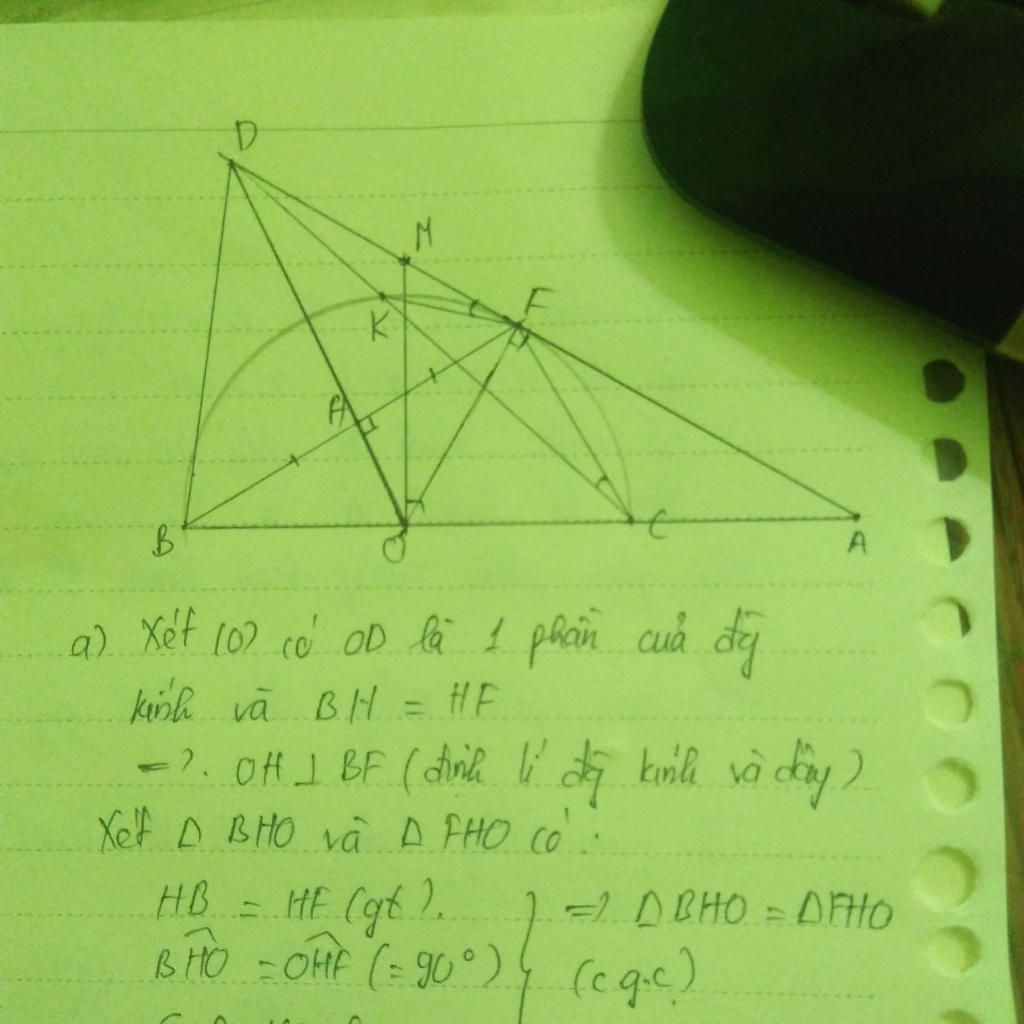 D
M
F
K
H
B
O
C
A
a) Xét (O) có OD là 1 phần của đg
kính và BH = HF
=> OH ⊥ BF (định lí đg kính và dây)
Xét Δ BHO và Δ FHO có:
HB = HF (gt).
=> Δ BHO = Δ FHO
BHO = OHF (= 90°)
(c.g.c)